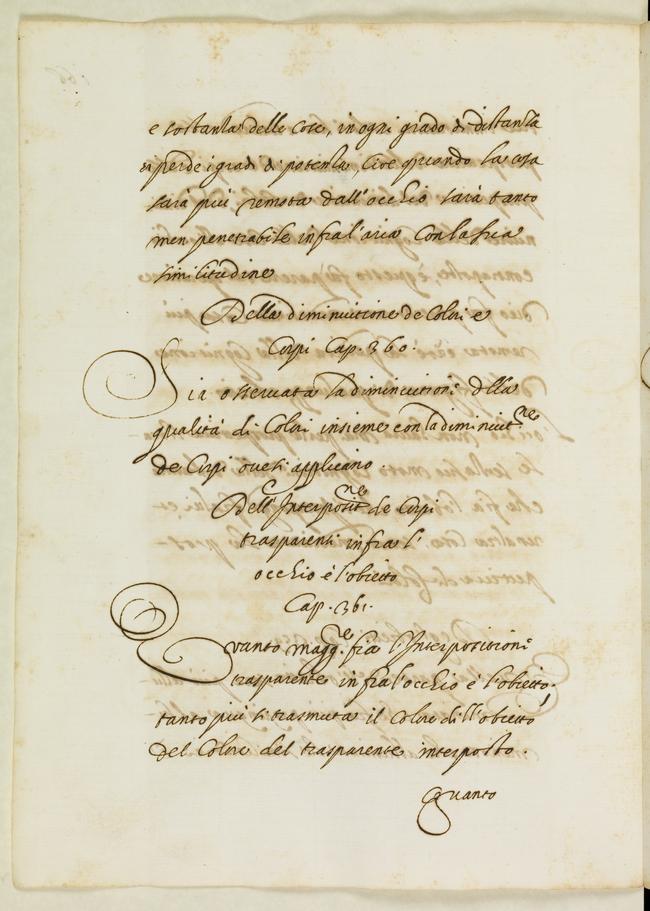 e sostanza delle cose, in ogni grado di distanza
si perde i gradi di potenza, cioe quando la cosa
sarà più remota dall'occhio sarà tanto
men penetrabile infra l'aria con la sua
similitudine
Della diminuitione de Colori e
Corpi Cap. 360.
Sia osservata la diminuitione della
qualità di Colori insieme con la diminuit.ne
de Corpi oue si applicano.
Dell'Interposit.ne de Corpi
trasparenti infra l'
occhio è l'obietto
Cap. 361.
Quanto magg.re fia l'Interpositione
trasparente infra l'occhio e l'obietto,
tanto più si trasmuta il Colore dell'obietto
del Colore del trasparente interposto.
Quanto